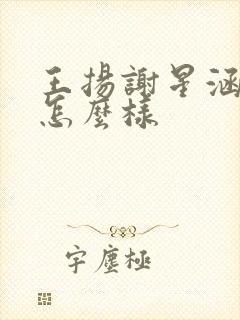 王揚謝星涵
怎麼樣
宇塵極